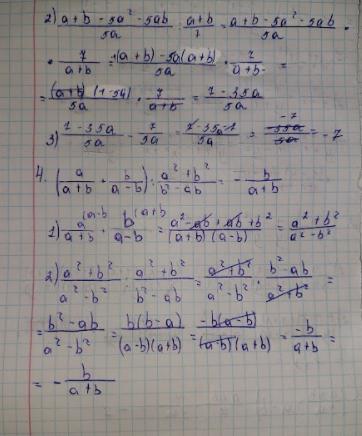 2) (a+b-5a²-5ab)/5a : (a+b)/7 = (a+b-5a²-5ab)/5a ·
· 7/(a+b) = ((a+b)-5a(a+b))/5a · 7/(a+b) =
= ((a+b)(1-5a))/5a · 7/(a+b) = (7-35a)/5a
3) (7-35a)/5a - 7/5a = (7-35a-7)/5a = (-35a)/5a = -7
4. (a/(a+b) + b/(a-b)) : (a²+b²)/(b²-ab) = -b/(a+b)
1) a/(a+b) (a-b) + b/(a-b) (a+b) = (a²-ab+ab+b²)/((a+b)(a-b)) = (a²+b²)/(a²-b²)
2) (a²+b²)/(a²-b²) : (a²+b²)/(b²-ab) = (a²+b²)/(a²-b²) · (b²-ab)/(a²+b²) =
= (b²-ab)/(a²-b²) = b(b-a)/((a-b)(a+b)) = -b(a-b)/((a-b)(a+b)) = -b/(a+b) =
= - b/(a+b)